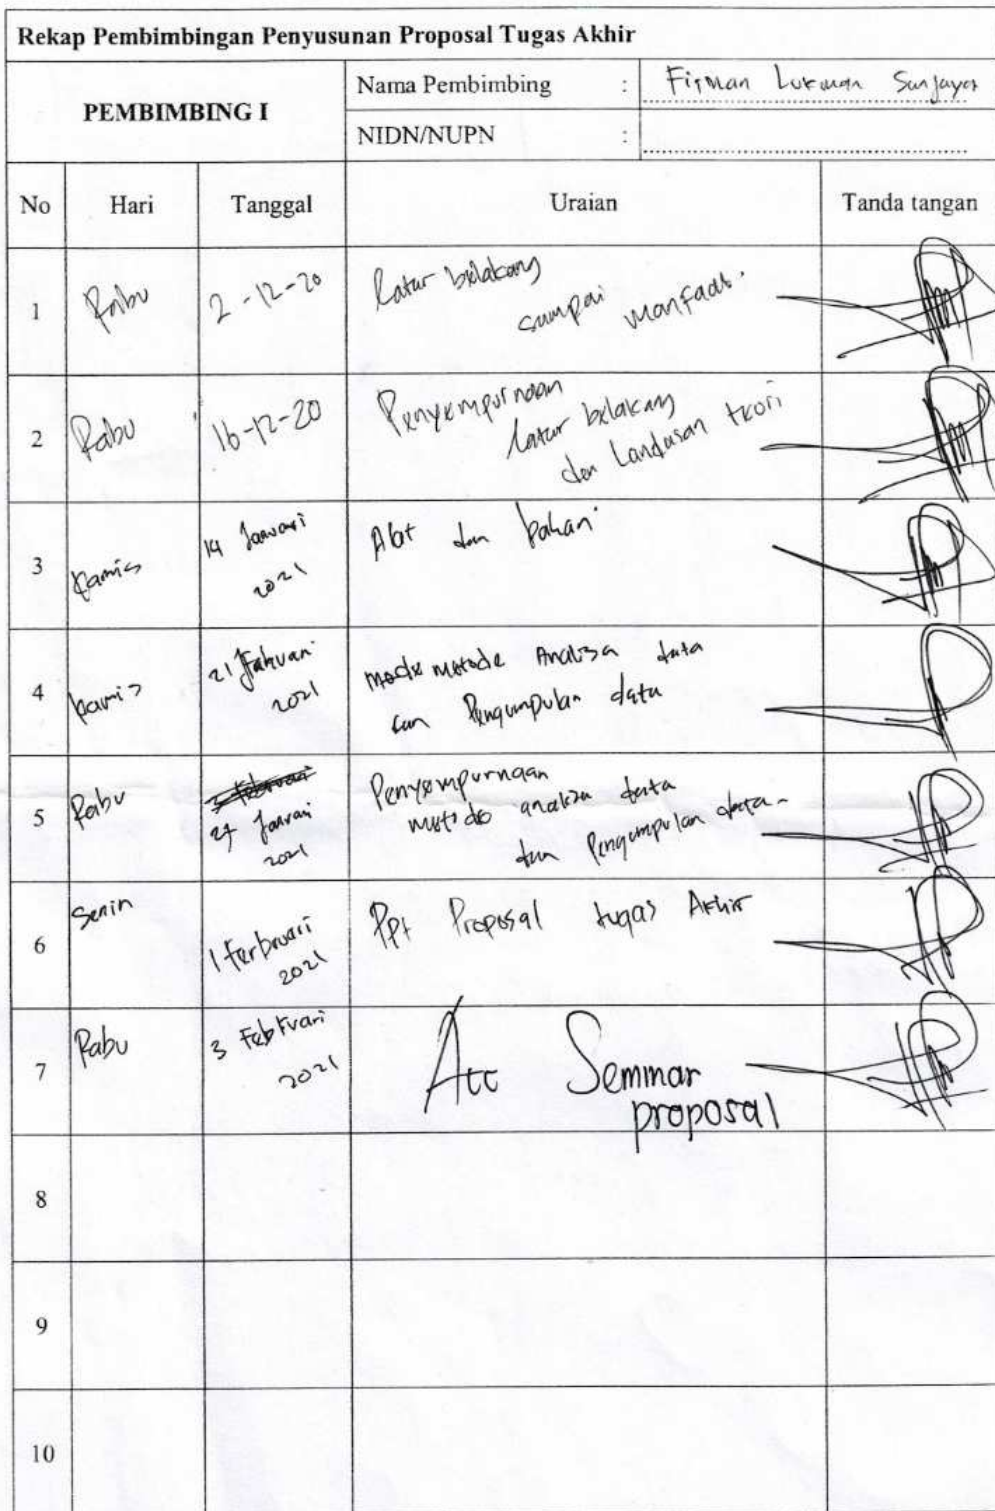 Rekap Pembimbingan Penyusunan Proposal Tugas Akhir
PEMBIMBING I
Nama Pembimbing : Firman Lukman Sanjaya
NIDN/NUPN :
No Hari Tanggal Uraian Tanda tangan
1 Rabu 2-12-20 Latar belakang
sampai manfaat.
2 Rabu 16-12-20 Penyempurnaan
latar belakang
dan Landasan teori
3 Kamis 14 Januari
2021
Alat dan bahan
4 kamis 21 Januari
2021
metode Analisa data
dan Pengumpulan data
5 Rabu 27 Januari
2021
Penyempurnaan
metode analisa data
dan Pengumpulan data
6 Senin 1 Ferbruari
2021
Ppt Proposal tugas Akhir
7 Rabu 3 Februari
2021
Acc Seminar
proposal
8
9
10